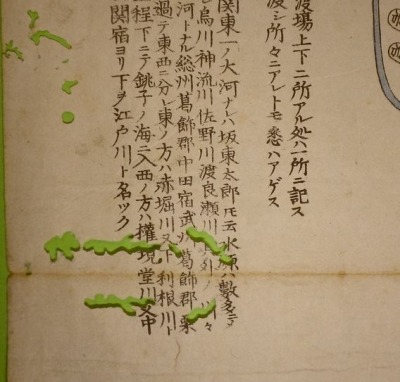 渡場上下二所アル処ハ一所ニ記ス
渡シ所々ニアレトモ悉ハアゲス
関東一ノ大河ナレハ坂東太郎トモ云水源ハ數多ニテ
烏川神流川佐野川渡良瀬川
河トナル総州葛飾郡中田宿武州葛飾郡栗
過テ東西ニ分レ東ノ方ハ赤堀川又下利根川ト
程下ニテ銚子ノ海ニ入西ノ方ハ權現堂川又中
関宿ヨリ下ヲ江戸川ト名ツク